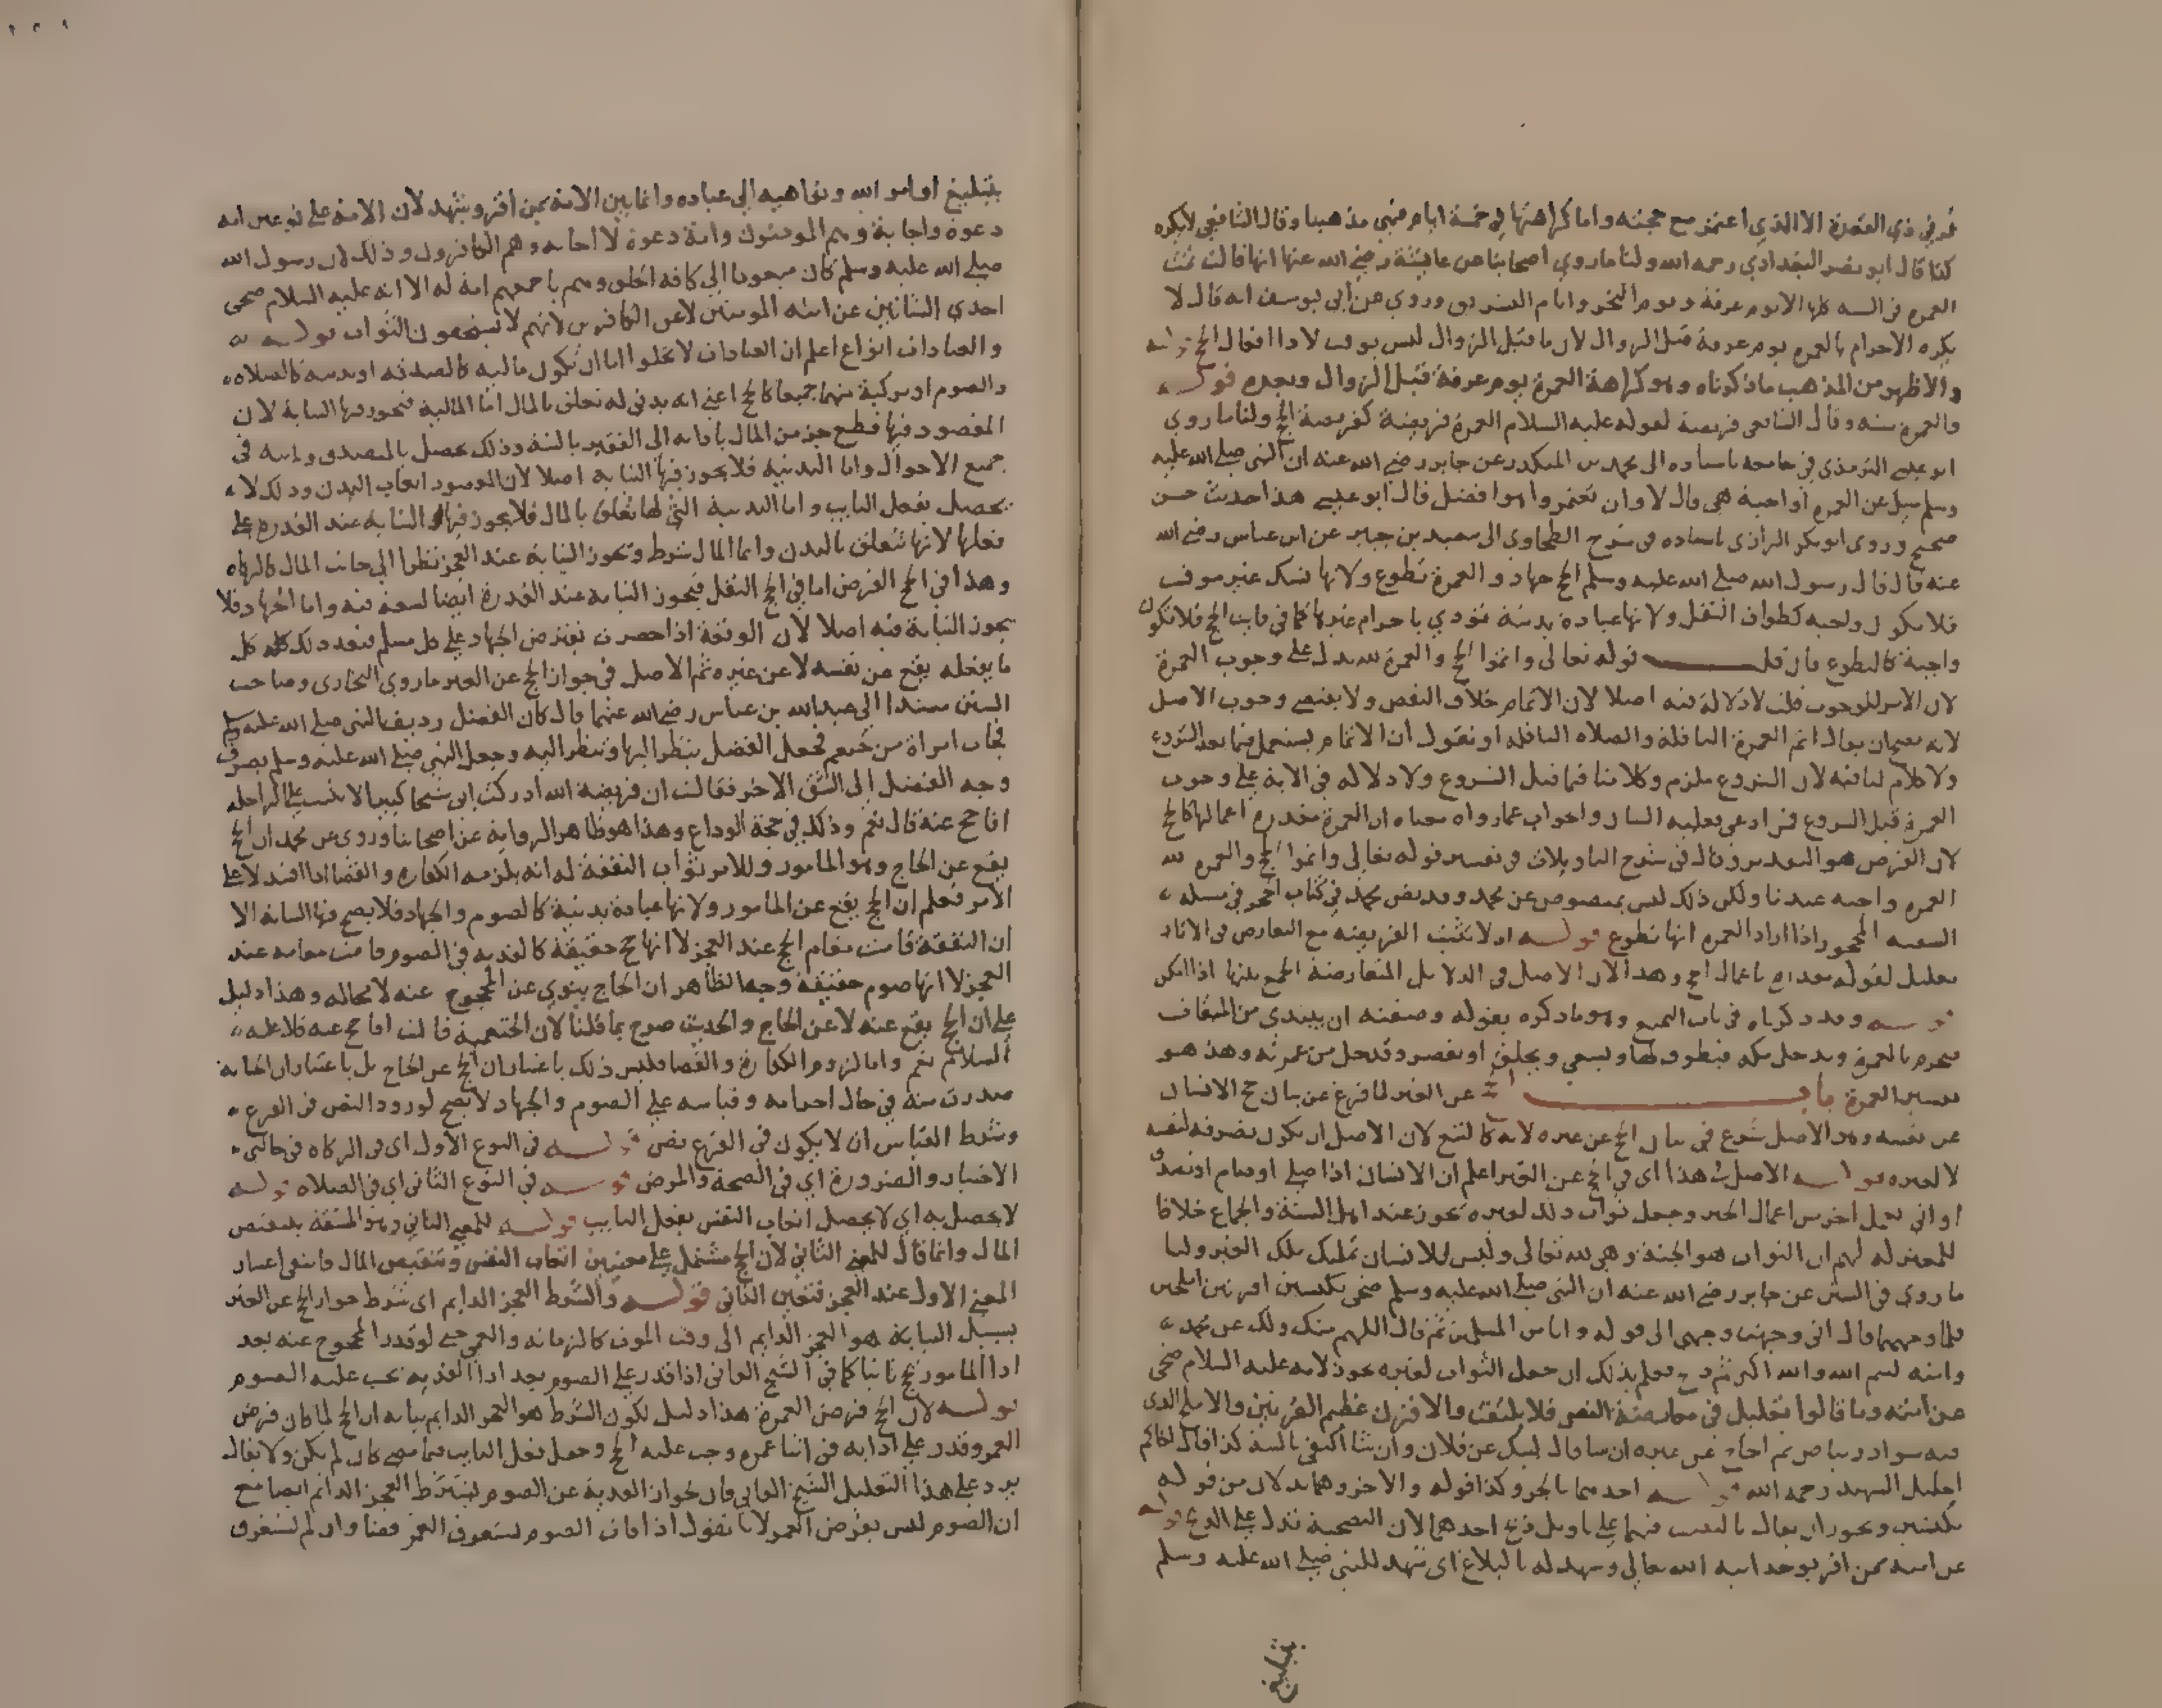 في ذي القعدة الا الذي اعتمر مع حجته واما كراهتها في خمسة ايام فهي مذهبنا وقال الشافعي لا يكره
كذا قال ابو نصر البغدادي رحمه الله ولنا ما روي اصحابنا عن عايشة رضي الله عنها انها قالت تمت
العمرة في السنة كلها الا يوم عرفة ويوم النحر وايام التشريق وروي عن ابي يوسف انه قال لا
يكره الاحرام بالعمرة يوم عرفة قبل الزوال لان ما قبل الزوال ليس بوقت لاداء افعال الحج قوله
والاظهر من المذهب ما ذكرناه وهو كراهة العمرة يوم عرفة قبل الزوال وبعده قوله
والعمرة سنة وقال الشافعي فريضة لقوله عليه السلام العمرة فريضة كفريضة الحج ولنا ما روي
ابو عيسى الترمذي في جامعه باسناده الى محمد بن المنكدر عن جابر رضي الله عنه ان النبي صلى الله عليه
وسلم سيل عن العمرة اواجبة هي قال لا وان تعتمروا هو افضل قال ابو عيسى هذا حديث حسن
صحيح وروى ابو بكر الرازي باسناده في شرح الطحاوي الى سعيد بن جبير عن ابن عباس رضي الله
عنه قال قال رسول الله صلى الله عليه وسلم الحج جهاد والعمرة تطوع ولانها نسك غير موقت
فلا يكون واجبة كطواف النفل ولانها عبادة بدنية تؤدي باحرام غيرها كما في فايت الحج فلا تكون
واجبة كالتطوع فان قلت قوله تعالى واتموا الحج والعمرة لله يدل على وجوب العمرة
لان الامر للوجوب قلت لا دلالة فيه اصلا لان الاتمام خلاف النقص ولا يقتضي وجوب الاصل
لانه يصح ان يقال اتم العمرة النافلة والصلاة النافلة او نقول ان الاتمام يستعمل فيما بعد الشروع
ولا كلام لنا فيه لان الشروع ملزم وكلامنا فيما قبل الشروع ولا دلالة في الاية على وجوب
العمرة قبل الشروع فمن ادعى فعليه البيان والجواب عما رواه معناه ان العمرة مقدرة اعمالها كالحج
لان الفرض هو التقدير وقال في شرح التاويلات في تفسير قوله تعالى واتموا الحج والعمرة لله
العمرة واجبة عندنا ولكن ذلك ليس بمنصوص عن محمد وقد نص محمد في كتاب الحجر في مسلة
السفيه المحجور اذا اراد العمرة انها تطوع قوله اذ لا تثبت الفريضة مع التعارض في الاثار
تعليل لقوله مقدرة باعمال الحج وهذا لان الاصل في الدلايل المتعارضة الجمع بينها اذا امكن
قوله وقد ذكرناه في باب التمتع وهو ما ذكره بقوله وصفته ان يبتدي من الميقات
فيحرم بالعمرة ويدخل مكة فيطوف لها ويسعى ويحلق او يقصر وقد حل من عمرته وهذا هو
تفسير العمرة باب الحج عن الغير لما فرغ عن بيان حج الانسان
عن نفسه وهو الاصل شرع في بيان الحج عن غيره لانه كالتبع لان الاصل ان يكون تصرفه لنفسه
لا لغيره قوله الاصل في هذا اي في الحج عن الغير اعلم ان الانسان اذا صلى او صام او تصدق
او اتى بعمل اخر من اعمال الخير وجعل ثواب ذلك لغيره يجوز عند اهل السنة والجماعة خلافا
للمعتزلة لهم ان الثواب هو الجنة وهي لله تعالى وليس للانسان تمليك ملك الغير ولنا
ما روي في السنن عن جابر رضي الله عنه ان النبي صلى الله عليه وسلم ضحى بكبشين اقرنين املحين
فلما وجههما قال اني وجهت وجهي الى قوله وانا من المسلمين ثم قال اللهم منك ولك عن محمد
وامته بسم الله والله اكبر ثم ذبح فعلم بذلك ان جعل الثواب لغيره يجوز لانه عليه السلام ضحى
عن امته وما قالوا تعليل في معارضة النص فلا يلتفت والاقرن عظيم القرنين والاملح الذي
فيه سواد وبياض ثم الحاج عن غيره ان شا قال لبيك عن فلان وان شا اكتفى بالنية كذا قال الحاكم
الجليل الشهيد رحمه الله قوله احدهما بالجر وكذا قوله والاخر وهما بدلان من قوله
بكبشين ويجوز ان يقال بالنصب فيهما على تاويل ذبح احدهما لان التضحية تدل على الذبح قوله
عن امته ممن اقر بوحدانية الله تعالى وشهد له بالبلاغ اي شهد للنبي صلى الله عليه وسلم
بتبليغ
بتبليغ اوامر الله ونواهيه الى عباده وانما بين الامة بمن اقر وشهد لان الامة على نوعين امة
دعوة واجابة وهم المومنون وامة دعوة لا اجابة وهم الكافرون وذلك لان رسول الله
صلى الله عليه وسلم كان مبعوثا الى كافة الخلق وهم باجمعهم امة له الا انه عليه السلام ضحى
احدي الشاتين عن امته المومنين لا عن الكافرين لانهم لا يستحقون الثواب قوله
والعبادات انواع اعلم ان العبادات لا تخلوا اما ان تكون مالية كالصدقة او بدنية كالصلاة
والصوم او مركبة منهما جميعا كالحج اعني انه بدني له تعلق بالمال اما المالية فيجوز فيها النيابة لان
المقصود فيها قطع جزء من المال باداء الى الفقير بالنية وذلك يحصل بالمتصدق ونايبه في
جميع الاحوال واما البدنية فلا يجوز فيها النيابة اصلا لان المقصود اتعاب البدن وذلك لا
يحصل بفعل النايب واما البدنية التي لها تعلق بالمال فلا يجوز فيها النيابة عند القدرة على
فعلها لانها تتعلق بالبدن وانما المال شرط وتجوز النيابة عند العجز نظرا الى جانب المال كالزكاة
وهذا في الحج الفرض اما في الحج النفل فيجوز النيابة عند القدرة ايضا لسعة فيه واما الجهاد فلا
يجوز النيابة فيه اصلا لان الوقعة اذا حضرت يفترض الجهاد على كل مسلم فبعد ذلك كل
ما يفعله يقع عن نفسه لا عن غيره ثم الاصل في جواز الحج عن الغير ما روي البخاري وصاحب
السنن مسندا الى عبد الله بن عباس رضي الله عنهما قال كان الفضل رديف النبي صلى الله عليه وسلم
فجات امراة من خثعم فجعل الفضل ينظر اليها وتنظر اليه وجعل النبي صلى الله عليه وسلم يصرف
وجه الفضل الى الشق الاخر فقالت ان فريضة الله ادركت ابي شيخا كبيرا لا يثبت على الراحلة
افاحج عنه قال نعم وذلك في حجة الوداع وهذا هو ظاهر الرواية عن اصحابنا وروي عن محمد ان الحج
يقع عن الحاج وهو المامور وللامر ثواب النفقة له انه يلزمه الكفارة والقضا اذا افسد لا على
الامر فعلم ان الحج يقع عن المامور ولانها عبادة بدنية كالصوم والجهاد فلا يصح فيها النيابة الا
ان النفقة قامت مقام الحج عند العجز لا انها حج حقيقة كالفدية في الصوم قامت مقامه عند
العجز لا انها صوم حقيقة وجه الظاهر ان الحاج ينوي عن المحجوج عنه لا محالة وهذا دليل
على ان الحج يقع عنه لا عن الحاج والحديث صرح بما قلنا لان الخثعمية قالت افاحج عنه فلا عليه
السلام نعم واما لزوم الكفارة والقضا فليس ذلك باعتبار ان الحج عن الحاج بل باعتبار ان الجناية
صدرت منه في حال احرامه وقياسه على الصوم والجهاد لا يصح لورود النص في الفرع
وشرط القياس ان لا يكون في الفرع نص قوله في النوع الاول اي في الزكاة في حالتي
الاختيار والضرورة اي في الصحة والمرض قوله في النوع الثاني اي في الصلاة قوله
لا يحصل به اي لا يحصل اتعاب النفس بفعل النايب قوله للمعنى الثاني وهو المشقة بتنقيص
المال وانما قال للمعنى الثاني لان الحج مشتمل على معنيين اتعاب النفس وتنقيص المال فانتفى اعتبار
المعنى الاول عند العجز فتعين الثاني قوله والشرط العجز الدايم اي شرط جواز الحج عن الغير
بسبيل النيابة هو العجز الدايم الى وقت الموت كالزمانة والعمى حتى لو قدر المحجوج عنه بعد
اداء المامور حج ثانيا كما في الشيخ الفاني اذا قدر على الصوم بعد اداء الفدية يجب عليه الصوم
قوله لان الحج فرض العمرة هذا دليل لكون الشرط هو العجز الدايم بيانه ان الحج لما كان فرض
العمر وقدر على ادايه في اثنا عمره وجب عليه الحج وجعل فعل النايب فيما مضى كان لم يكن ولا يقال
يرد على هذا التعليل الشيخ الفاني فان جواز الفدية عن الصوم يشترط العجز الدايم ايضا مع
ان الصوم ليس بفرض العمر لانا نقول اذا فات الصوم يستغرق العمر قضا وان لم يستغرق